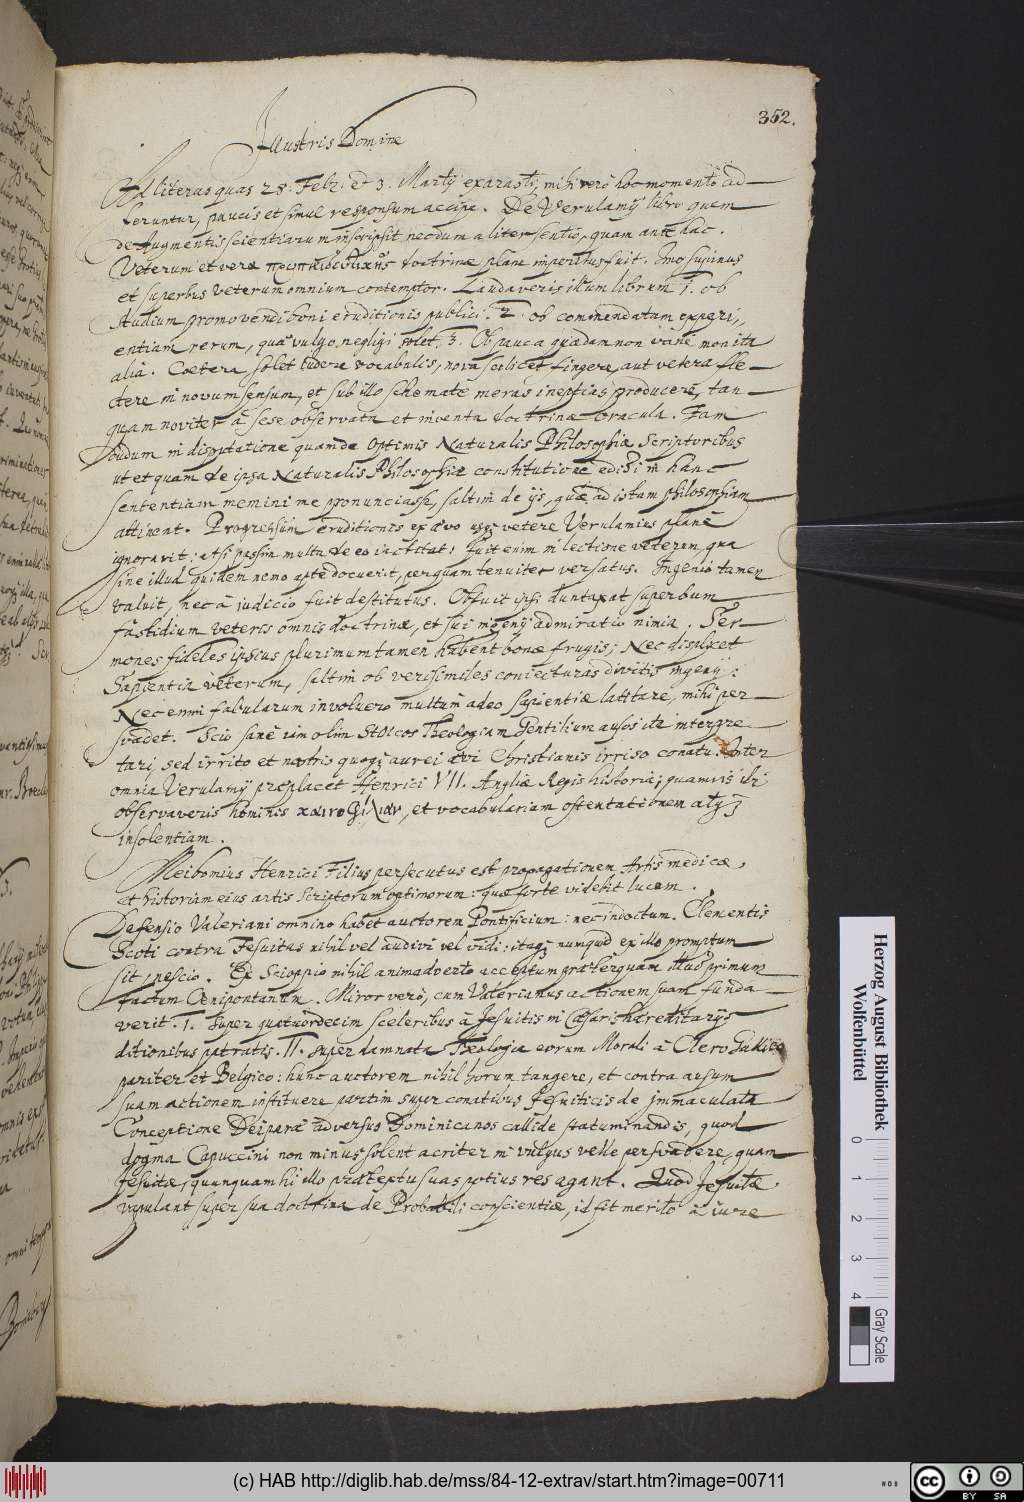 352.
Illustris Domine
Ad literas quas 28. Febr. et 3. Martij exarasti, mihi vero hoc momento ad-
feruntur, paucis et simul responsum accipe. De Verulamij libro quem
de Augmentis scientiarum inscripsit necdum aliter sentio, quam antehac.
Veterum et veræ doctrinæ plane imperitus fuit. Imo supinus
et superbus veterum omnium contemptor. Laudaveris illum librum 1. ob
studium promovendi boni eruditionis publici. 2. ob commendatam experi-
entiam rerum, quæ vulgo negligi solet. 3. Ob pauca quædam non vane monita
alia. Cœtera solet ludere vocabulis, nova scilicet fingere, aut vetera fle-
ctere in novum sensum, et sub illo schemate meras ineptias producere, tan-
quam noviter à sese observata et inventa doctrinæ oracula. Iam
dudum in disputatione quamde Optimis Naturalis Philosophiæ Scriptoribus
ut et quam de ipsa Naturalis Philosophiæ constitutione edidi in hanc
sententiam memini me pronunciasse, saltim de ijs, quæ ad istam philosophiam
attinent. Progressum eruditionis ex ævo usq; vetere Verulamius planè
ignoravit: etsi passim multa de eo iactitat. Fuit enim in lectione veterum, qua
sine illud quidem nemo apte docuerit, perquam tenuiter versatus. Ingenio tamen
valuit, nec à judicio fuit destitutus. Obfuit ipsi duntaxat superbum
fastidium veteris omnis doctrinæ, et sui ingenij admiratio nimia. Ser-
mones fideles ipsius plurimum tamen habent bonæ frugis; Nec displicet
Sapientia veterum, saltim ob verisimiles coniecturas divitis ingenij:
Nec enim fabularum involucro multum adeo sapientiæ latitare, mihi per-
svadet. Scio sanè iam olim Stoicos Theologiam Gentilium ausos ita interpre-
tari, sed irrito et nostris quoq; aurei ævi Christianis irriso conatu. Inter
omnia Verulamij præplacet Henrici VII. Angliæ Regis historia; quamvis ibi
observaveris hominis et vocabulariam ostentationem atq;
insolentiam.
Meibomius Henrici Filius persecutus est propagationem Artis medicæ,
et historiam eius artis scriptorum optimorum: quæ forte videbit lucem.
Defensio Valeriani omnino habet auctorem Pontificium: nec indoctum. Clementis
Scoti contra Jesuitas nihil vel audivi vel vidi: itaq; numquid ex illo promptum
sit, nescio. Ex Scioppio nihil animadverto acceptum præterquam illud primum
factum Œnipontanum. Miror vero, cum Valerianus actionem suam funda-
verit. I. super quatuordecim sceleribus à Jesuitis in Cæsar: hæreditarijs
ditionibus patratis. II. super damnata Theologia eorum Morali à Clero Gallico
pariter et Belgico: hunc auctorem nihil horum tangere, et contra ausum
suam actionem instituere partim super conatibus Jesuiticis de immaculata
Conceptione Deiparæ adversus Dominicanos callide statuminandis, quod
dogma Capuccini non minus solent acriter in vulgus velle persvadere, quam
Jesuitæ, quanquam hi illo prætextu suas potius res agant. Quod Jesuitæ
vapulant super sua doctrina de Probabili conscientiæ, id fit merito à iure
Herzog August Bibliothek
Wolfenbüttel
0 1 2 3 4
Gray Scale
(c) HAB http://diglib.hab.de/mss/84-12-extrav/start.htm?image=00711
cc BY SA